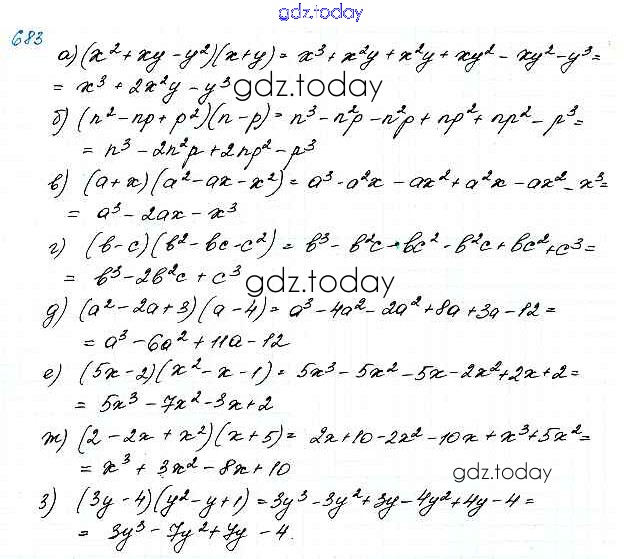 gdz.today
683
а) (x² + xy - y²)(x + y) = x³ + x²y + x²y + xy² - xy² - y³ =
= x³ + 2x²y - y³ gdz.today
б) (n² - np + p²)(n - p) = n³ - n²p - n²p + np² + np² - p³ =
= n³ - 2n²p + 2np² - p³
в) (a + x)(a² - ax - x²) = a³ - a²x - ax² + a²x - ax² - x³ =
= a³ - 2ax - x³
г) (b - c)(b² - bc - c²) = b³ - b²c - bc² - b²c + bc² + c³ =
= b³ - 2b²c + c³ gdz.today
д) (a² - 2a + 3)(a - 4) = a³ - 4a² - 2a² + 8a + 3a - 12 =
= a³ - 6a² + 11a - 12
е) (5x - 2)(x² - x - 1) = 5x³ - 5x² - 5x - 2x² + 2x + 2 =
= 5x³ - 7x² - 3x + 2
ж) (2 - 2x + x²)(x + 5) = 2x + 10 - 2x² - 10x + x³ + 5x² =
= x³ + 3x² - 8x + 10 gdz.today
з) (3y - 4)(y² - y + 1) = 3y³ - 3y² + 3y - 4y² + 4y - 4 =
= 3y³ - 7y² + 7y - 4.
gdz.today